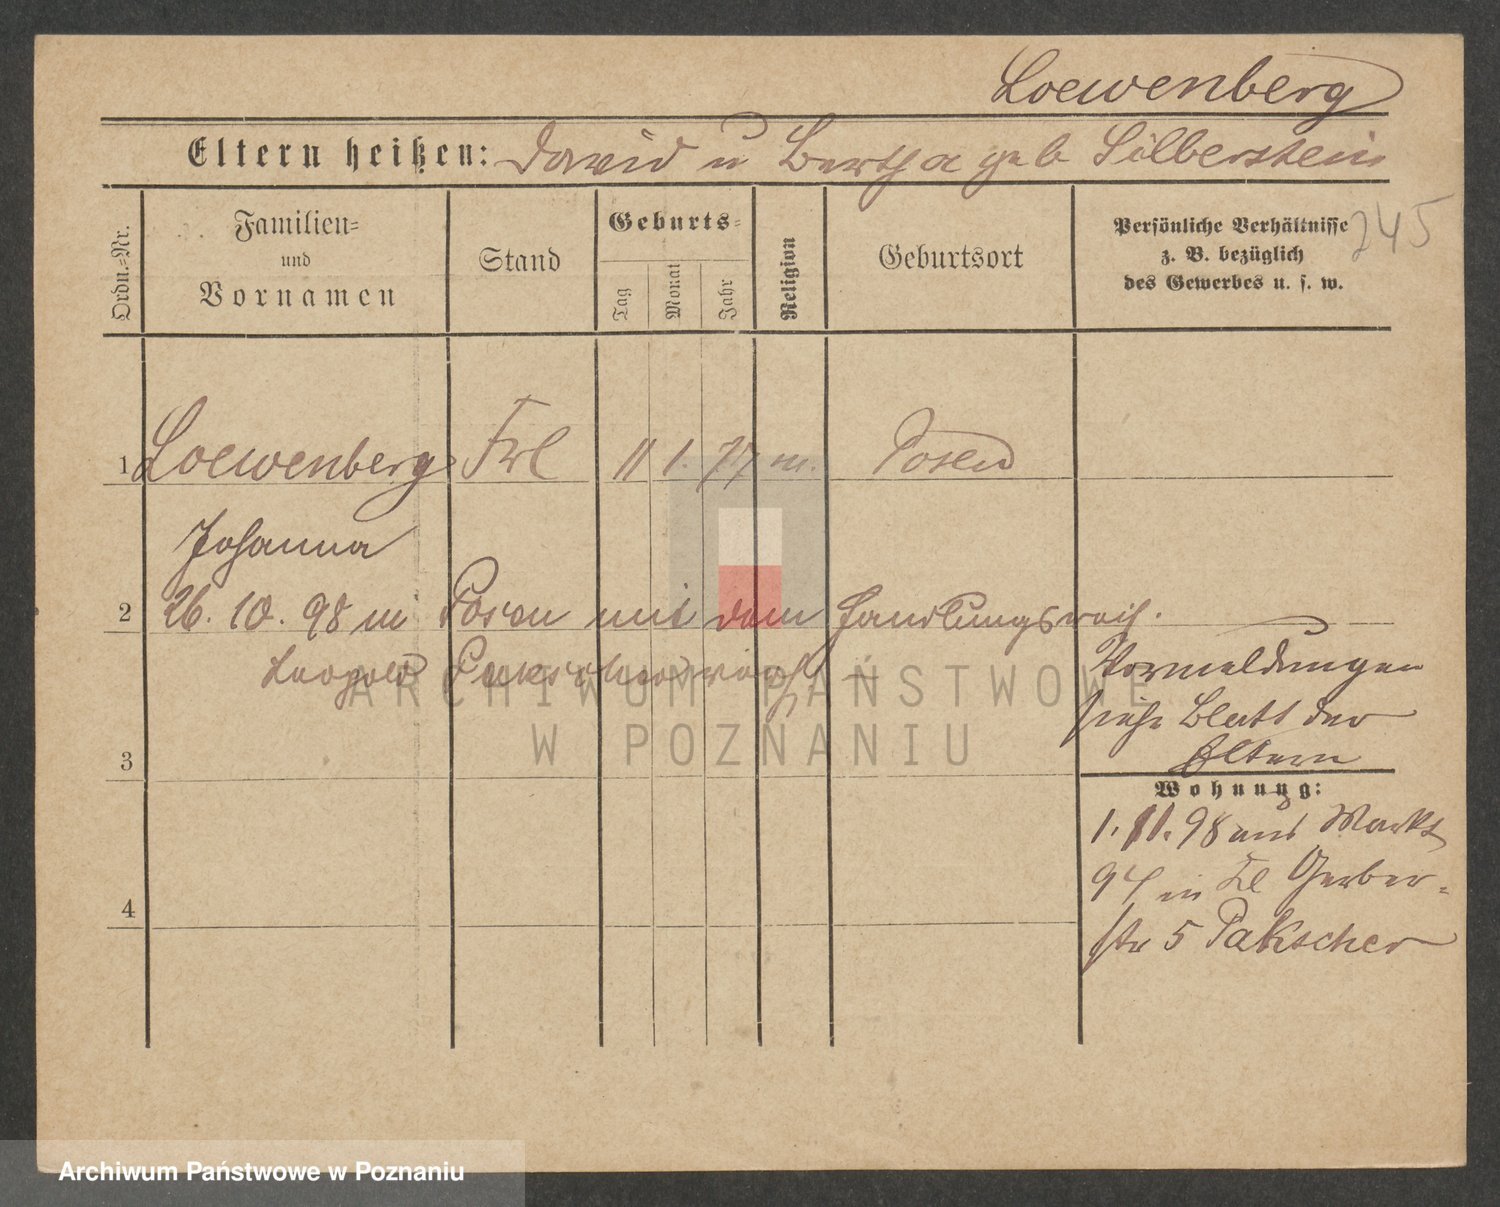 Loewenberg
Eltern heißen: David u Bertha geb Silberstein
245
Ordn.-Nr.
Familien-
und
Vornamen
Stand
Geburts-
Tag
Monat
Jahr
Religion
Geburtsort
Persönliche Verhältnisse
z. B. bezüglich
des Gewerbes u. s. w.
1 Loewenberg Frl 11 1. 77 m. Posen
Johanna
2 26. 10. 98 in Posen mit dem Handlungsreis.
Leopold Pakscher
Vormeldungen
siehe Blatt der
Eltern
3
Wohnung:
1. 11. 98 aus Markt
94 in Kl Gerber-
4
str 5 Pakscher
ARCHIWUM PAŃSTWOWE
W POZNANIU
Archiwum Państwowe w Poznaniu